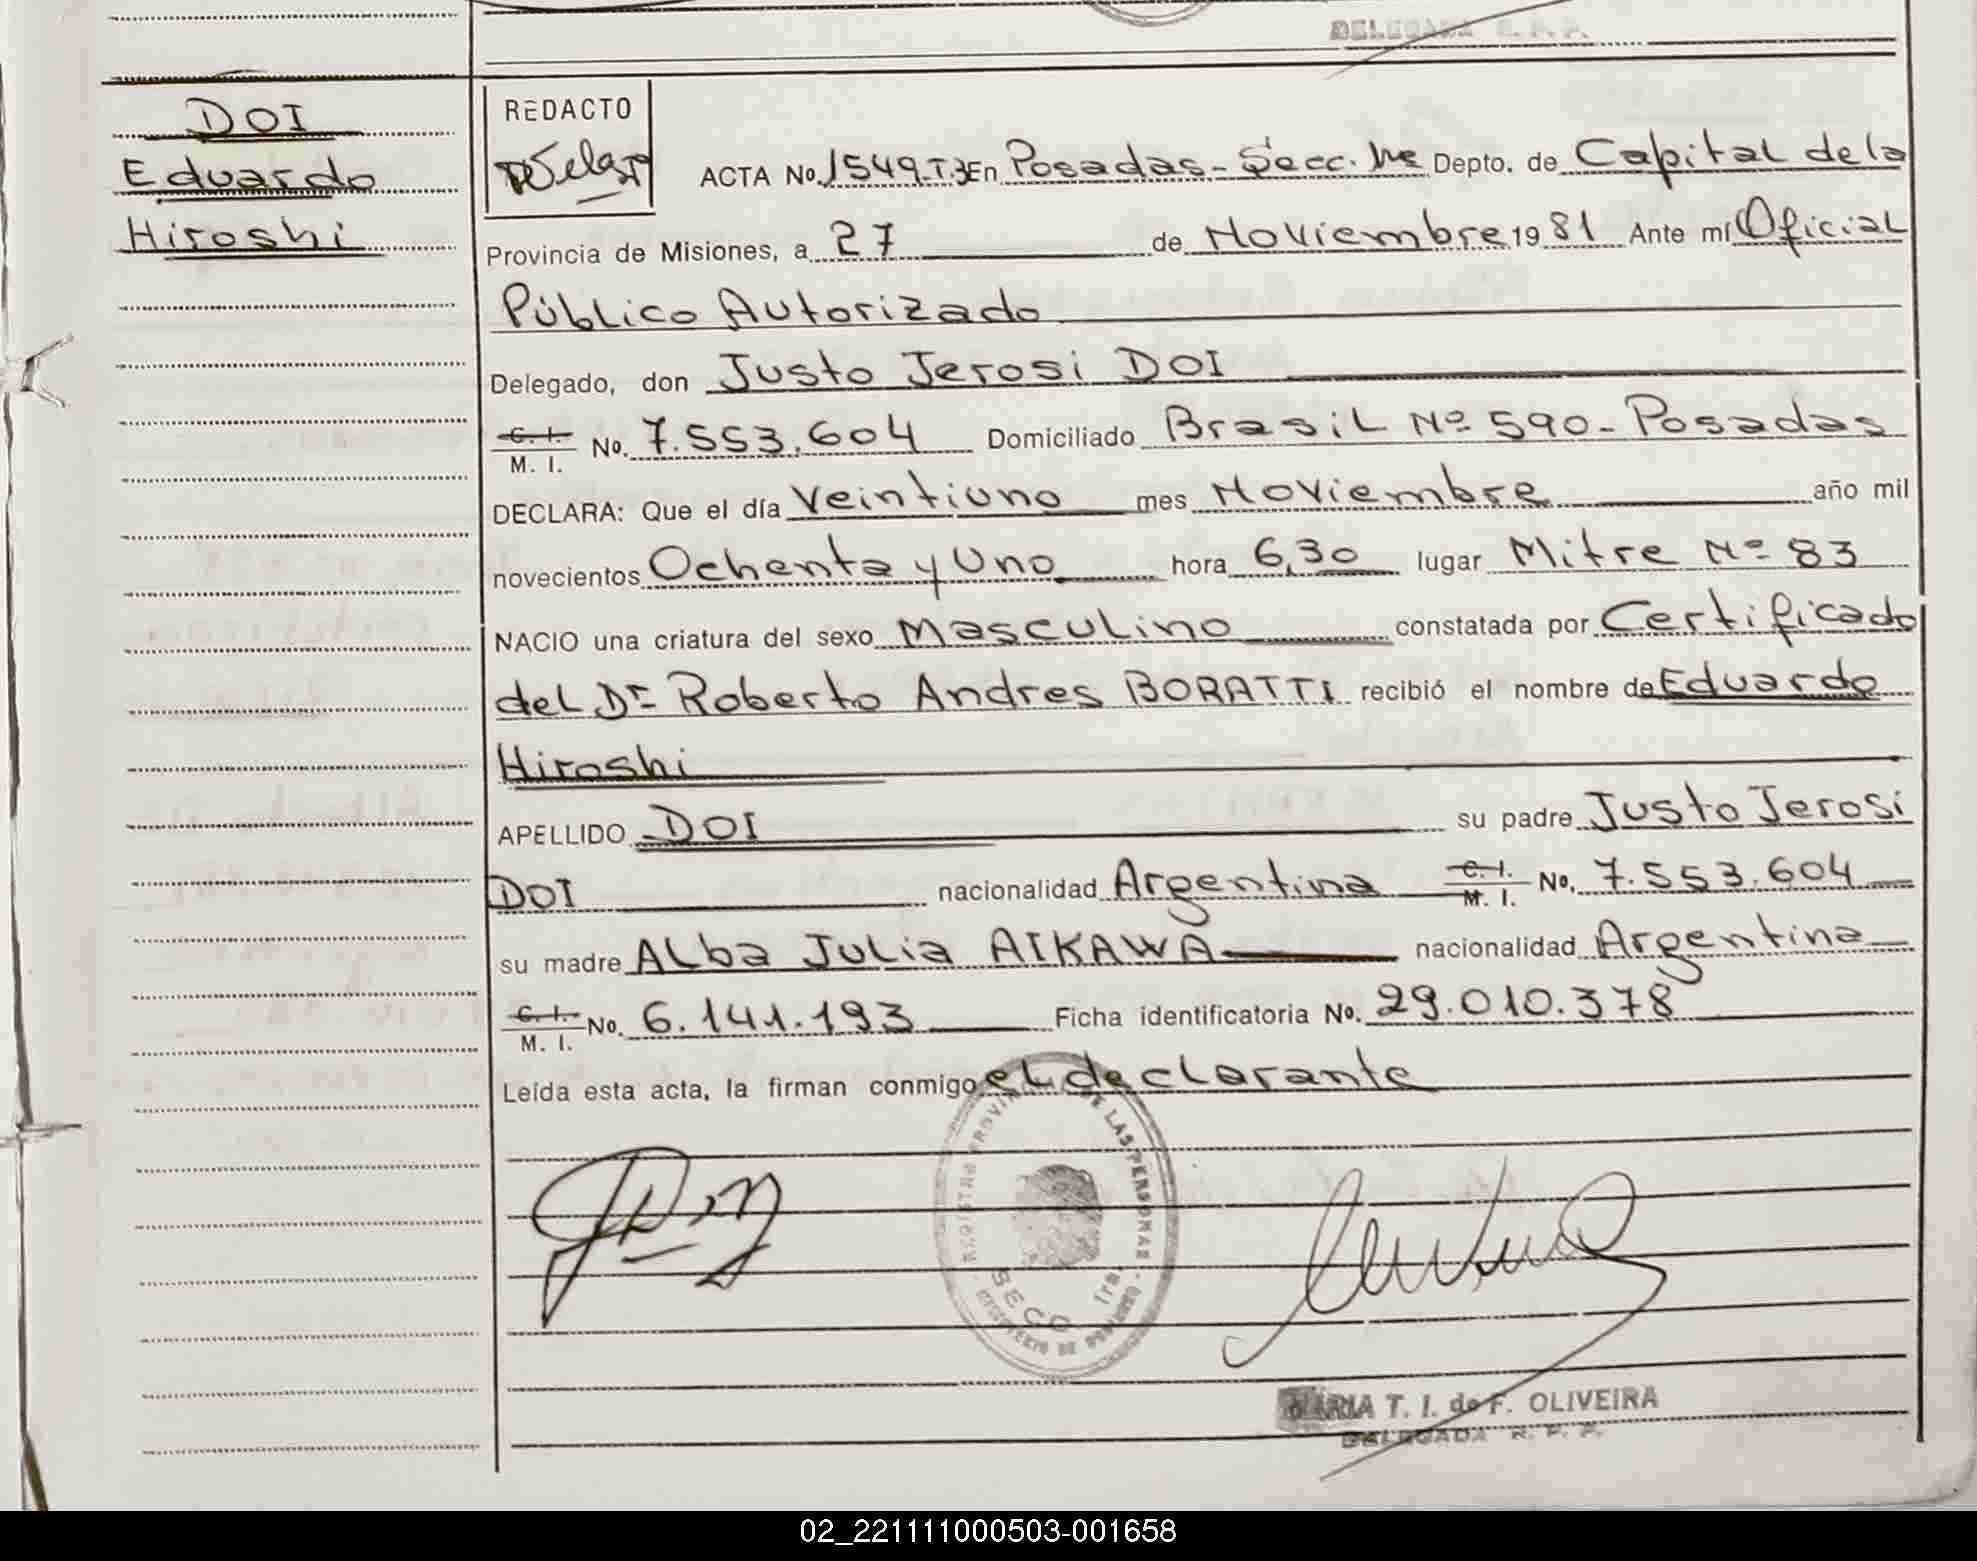 DELEGADA R. P. P.
DOI
Eduardo
Hiroshi
REDACTO
ACTA No. 1549-T.3 En Posadas - Secc. 1ra Depto. de Capital de la
Provincia de Misiones, a 27 de Noviembre 1981 Ante mí Oficial
Público Autorizado
Delegado, don Justo Jerosi DOI
C. I.
M. I. No. 7.553.604 Domiciliado Brasil Nº 590 - Posadas
DECLARA: Que el día Veintiuno mes Noviembre año mil
novecientos Ochenta y Uno hora 6,30 lugar Mitre Nº 83
NACIO una criatura del sexo Masculino constatada por Certificado
del Dr Roberto Andres BORATTI recibió el nombre de Eduardo
Hiroshi
APELLIDO DOI su padre Justo Jerosi
DOI nacionalidad Argentina C. I. M. I. No. 7.553.604
su madre Alba Julia AIKAWA nacionalidad Argentina
C. I.
M. I. No. 6.141.193 Ficha identificatoria No. 29.010.378
Leída esta acta, la firman conmigo el declarante
REGISTRO PROVINCIAL DE LAS PERSONAS
SECC 1ra.
MINISTERIO DE GOBIERNO
MARIA T. I. de F. OLIVEIRA
DELEGADA R. P. P.
02_221111000503-001658